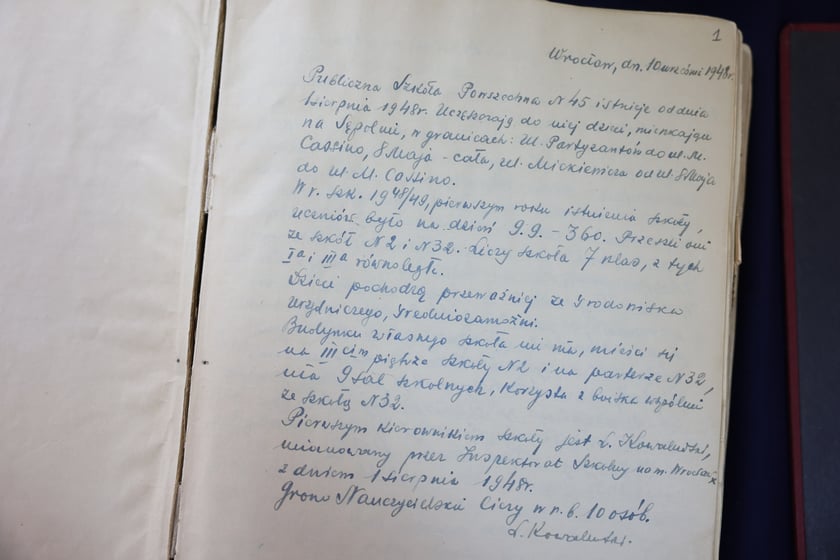 1
Wrocław, dn. 10 wrześni 1948r.
Publiczna Szkoła Powszechna N 45 istnieje od dnia
1 sierpnia 1948r. Uczęszczają do niej dzieci, mieszkające
na Sępolnie, w granicach: ul. Partyzantów do ul. M.
Cassino, 8 Maja - cała, ul. Mickiewicza od ul. 8 Maja
do ul. M. Cassino.
W r. szk. 1948/49, pierwszym roku istnienia szkoły,
uczniów było na dzień 9.9. - 360. Przeszli oni
ze szkół N 2 i N 32. Liczy szkoła 7 klas, z tych
Ia i IIIa równoległe.
Dzieci pochodzą przeważnie ze środowiska
urzędniczego, średniozamożni.
Budynku własnego szkoła nie ma, mieści się
na IIIcim piętrze szkoły N 2 i na parterze N 32,
ma 9 sal szkolnych, korzysta z boiska wspólnie
ze szkołą N 32.
Pierwszym kierownikiem szkoły jest L. Kowalewski,
mianowany przez Inspektorat Szkolny na m. Wrocław
z dniem 1 sierpnia 1948r.
Grono Nauczycielskie liczy w r. b. 10 osób.
L. Kowalewski.